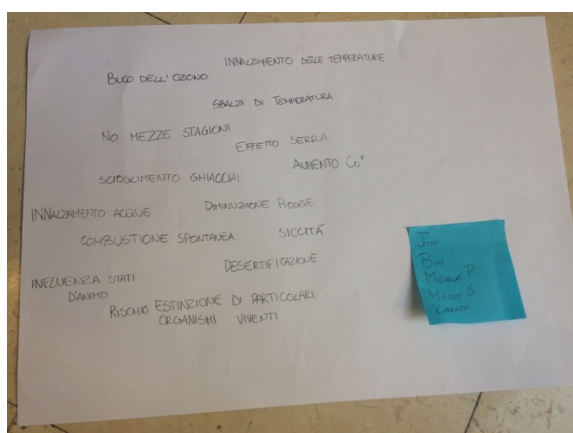 INNALZAMENTO DELLE TEMPERATURE
BUCO DELL'OZONO
SBALZI DI TEMPERATURA
NO MEZZE STAGIONI
EFFETTO SERRA
AUMENTO CO²
SCIOGLIMENTO GHIACCIAI
INNALZAMENTO ACQUE
DIMINUZIONE PIOGGE
COMBUSTIONE SPONTANEA
SICCITÁ
DESERTIFICAZIONE
INFLUENZA STATI
D'ANIMO
RISCHIO ESTINZIONE DI PARTICOLARI
ORGANISMI VIVENTI
MICHELE P.